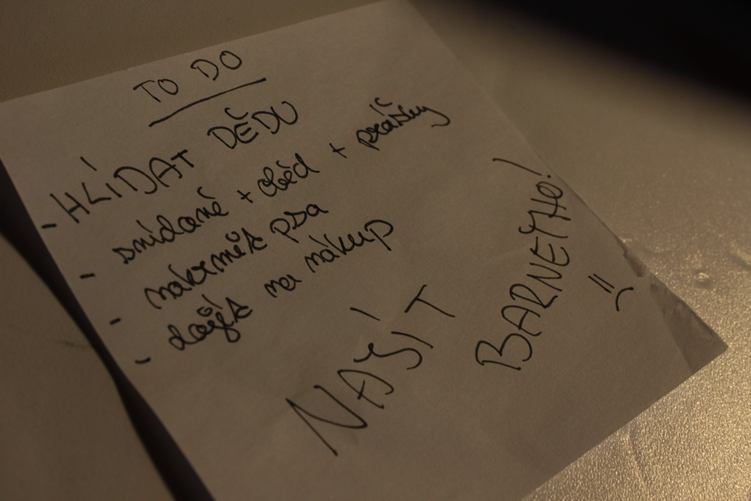 TO DO
- HLÍDAT DĚDU
- snídaně + oběd + prášky
- nakrmit psa
- dojít na nákup
NAJÍT
BARNEYHO! :(